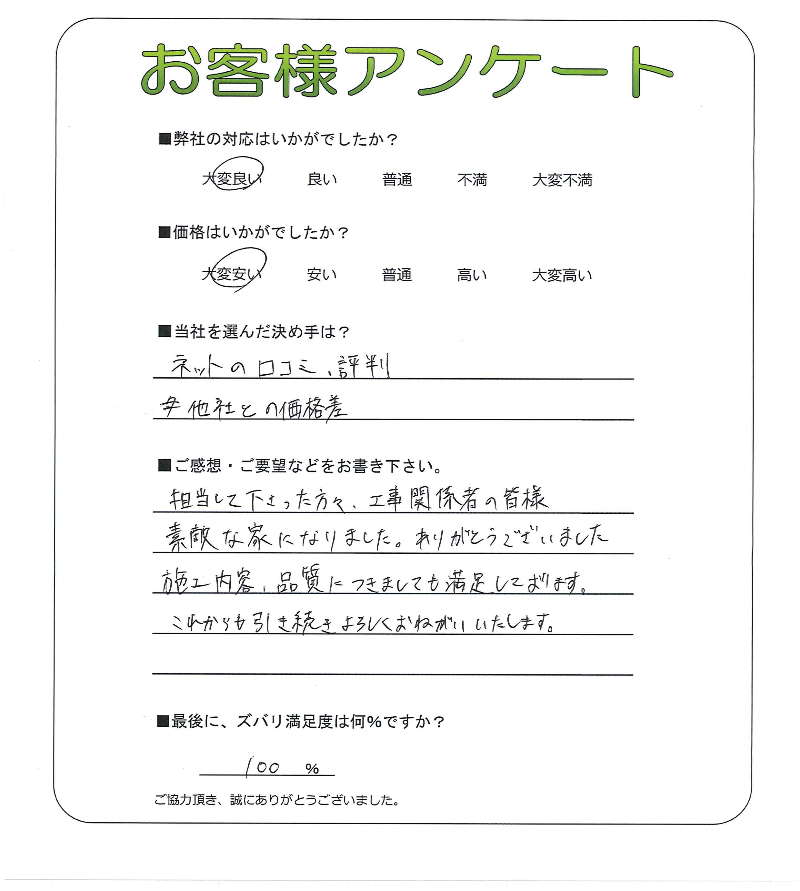 お客様アンケート
■弊社の対応はいかがでしたか？
大変良い 良い 普通 不満 大変不満
■価格はいかがでしたか？
大変安い 安い 普通 高い 大変高い
■当社を選んだ決め手は？
ネットの口コミ、評判
他社との価格差
■ご感想・ご要望などをお書き下さい。
担当して下さった方々、工事関係者の皆様
素敵な家になりました。ありがとうございました
施工内容、品質につきましても満足しております。
これからも引き続きよろしくおねがいいたします。
■最後に、ズバリ満足度は何％ですか？
100 ％
ご協力頂き、誠にありがとうございました。